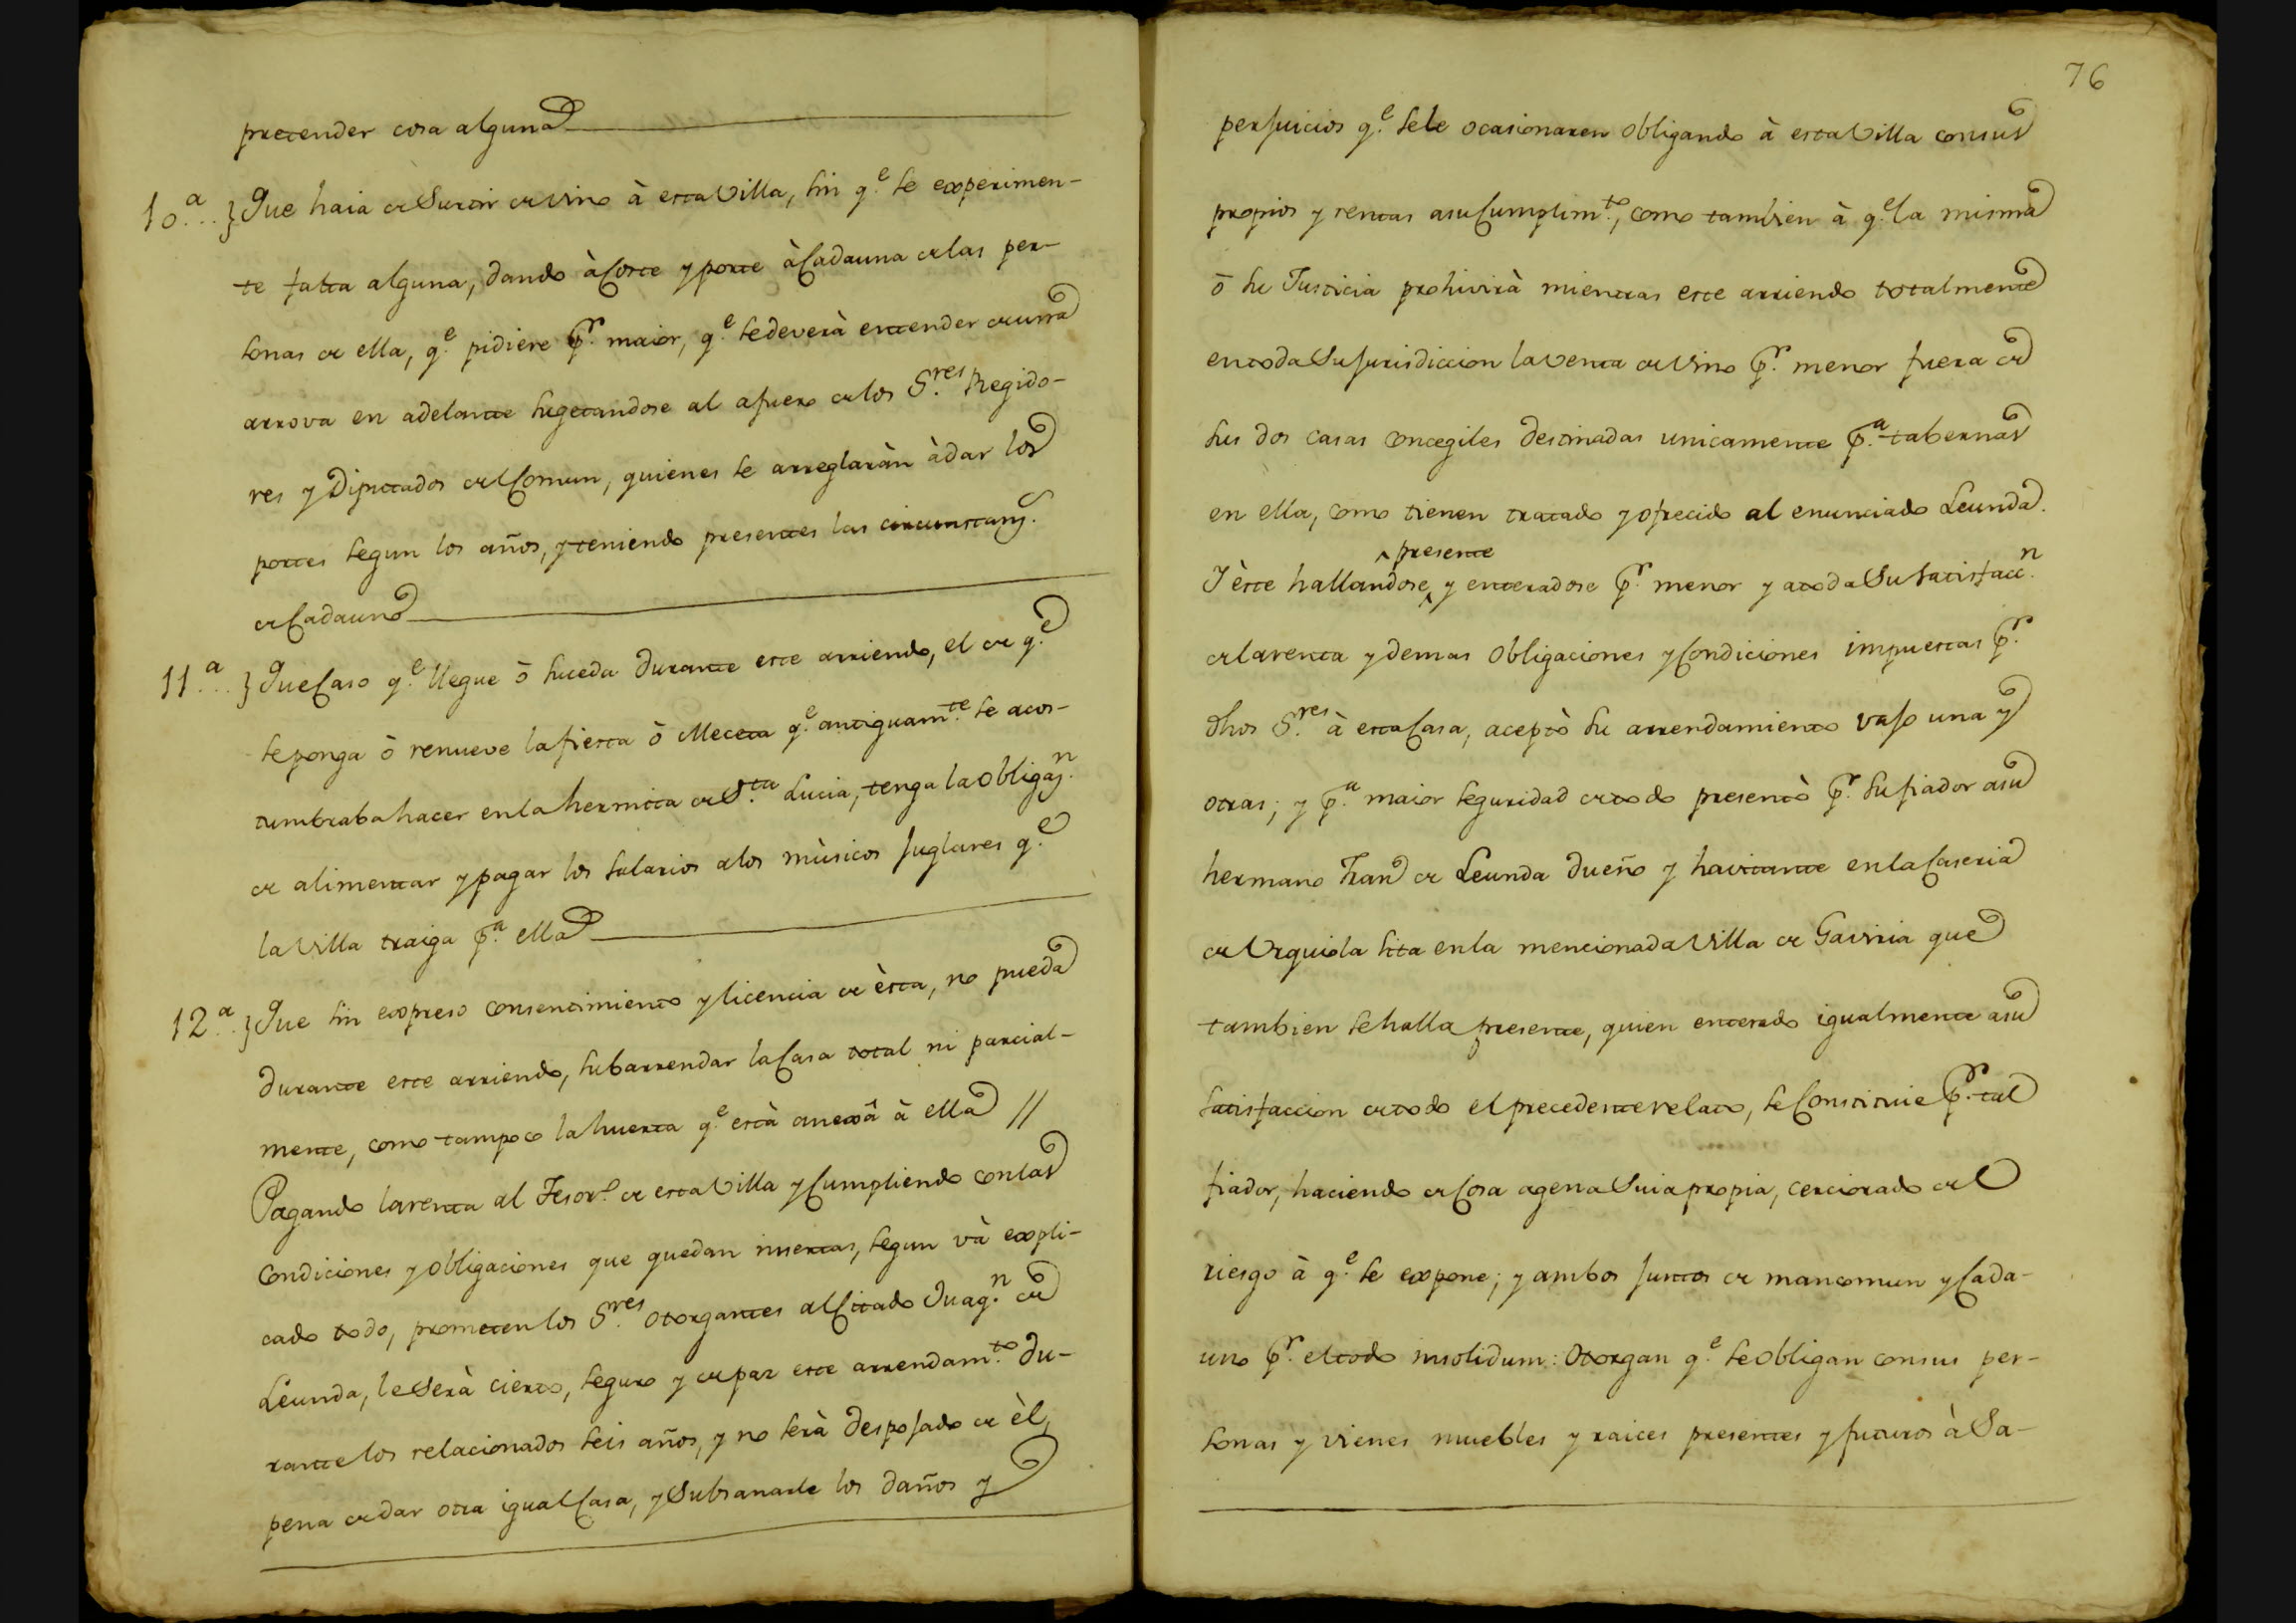 pretender cosa alguna
10.ª.. } Que haia de Surtir de vino à esta Villa, sin q.e se experimen-
te falta alguna, dando à Coste y porte à Cadauna de las per-
sonas de ella, q.e pidiere p.r maior, q.e sedeverà entender de una
arrova en adelante sugetandose al afuero de los S.res Regido-
res y Diputados del Comun, quienes se arreglaràn à dar los
portes segun los años, y teniendo presentes las circunstanz.s
de Cadauno
11.ª.. } Que Caso q.e llegue ô suceda durante este arriendo, el de q.e
seponga ô renueve la fiesta ô Meceta q.e antiguam.te se acos-
tumbraba hacer enla hermita de S.ta Lucia, tenga la obligaz.n
de alimentar y pagar los salarios alos mùsicos Juglares q.e
la Villa traiga p.a ella
12.ª.. } Que sin expreso consentimiento y licencia de èsta, no pueda
durante este arriendo, subarrendar la Casa total ni parcial-
mente, como tampoco la huerta q.e està anexâ à ella //
Pagando la renta al Tesor.o de esta Villa y Cumpliendo con las
Condiciones y obligaciones que quedan insertas, segun và expli-
cado todo, prometen los S.res otorgantes al Citado Juaq.n de
Leunda, le Serà cierto, seguro y de paz este arrendam.to du-
rante los relacionados seis años, y no serà despojado de èl,
pena de dar otra igual Casa, y Subsanarle los daños y
76
perjuicios q.e sele ocasionaren obligando à esta Villa con sus
propios y rentas asu Cumplim.to, como tambien à q.e la misma
ô su Justicia prohivirà mientras este arriendo totalmente
en toda Su Jurisdiccion la venta de vino p.r menor fuera de
sus dos casas concegiles destinadas unicamente p.a tabernas
en ella, como tienen tratado y ofrecido al enunciado Leunda.
^ presente
Y èste hallandose ^ y enteradose p.r menor y atoda Su satisfacc.n
de la renta y demas obligaciones y Condiciones impuestas p.r
dhos S.res à esta Casa, aceptò su arrendamiento vajo una y
otras; y p.a maior seguridad de todo presentò p.r su fiador asu
hermano Fran.co de Leunda dueño y havitante en la Caseria
de Urquiola sita en la mencionada Villa de Gaviria que
tambien sehalla presente, quien enterado igualmente asu
satisfaccion de todo el precedente relato, se Constituie p.r tal
fiador, haciendo de Cosa agena Suia propia, cerciorado del
riesgo à q.e se expone; y ambos juntos de mancomun y Cada-
uno p.r el todo insolidum: Otorgan q.e se obligan con sus per-
sonas y vienes muebles y raices presentes y futuros à Sa-